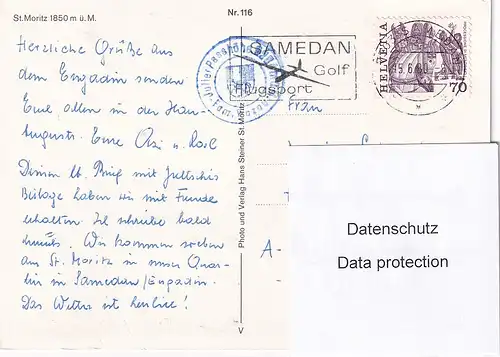 St. Moritz 1850 m ü. M.
Nr. 116
Herzliche Grüße aus
dem Engadin senden
Eure alten in der
Eure Osi u.
Dinen lb. Brief mit
Beilage haben wir mit Freude
erhalten. Ich schreibe bald
. Wir kommen soeben
aus St. Moritz in unser Quar-
tier in Samedan/Engadin.
Das Wetter ist herrlich!
Photo und Verlag Hans Steiner St. Moritz
V
SAMEDAN
Golf
Flugsport
HELVETIA
70
A-
Datenschutz
Data protection